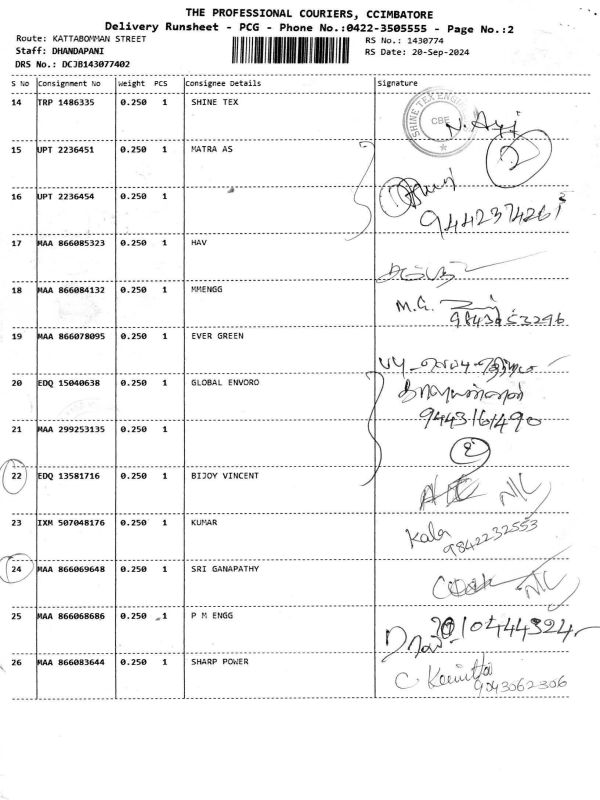 THE PROFESSIONAL COURIERS, CCIMBATORE
Delivery Runsheet - PCG - Phone No.:0422-3505555 - Page No.:2
Route: KATTABOMMAN STREET RS No.: 1430774
Staff: DHANDAPANI RS Date: 20-Sep-2024
DRS No.: DCJB143077402
S No Consignment No Weight PCS Consignee Details Signature
14 TRP 1486335 0.250 1 SHINE TEX
SHINE TEX ENGG
CBE
15 UPT 2236451 0.250 1 MATRA AS 2
16 UPT 2236454 0.250 1
9442374261
17 MAA 866085323 0.250 1 HAV
18 MAA 866084132 0.250 1 MMENGG M.G.
19 MAA 866078095 0.250 1 EVER GREEN
20 EDQ 15040638 0.250 1 GLOBAL ENVORO
9443161490
21 MAA 299253135 0.250 1 2
22 EDQ 13581716 0.250 1 BIJOY VINCENT N/C
23 IXM 507048176 0.250 1 KUMAR Kala
9842232553
24 MAA 866069648 0.250 1 SRI GANAPATHY N/C
25 MAA 866068686 0.250 1 P M ENGG
26 MAA 866083644 0.250 1 SHARP POWER C
9043062306